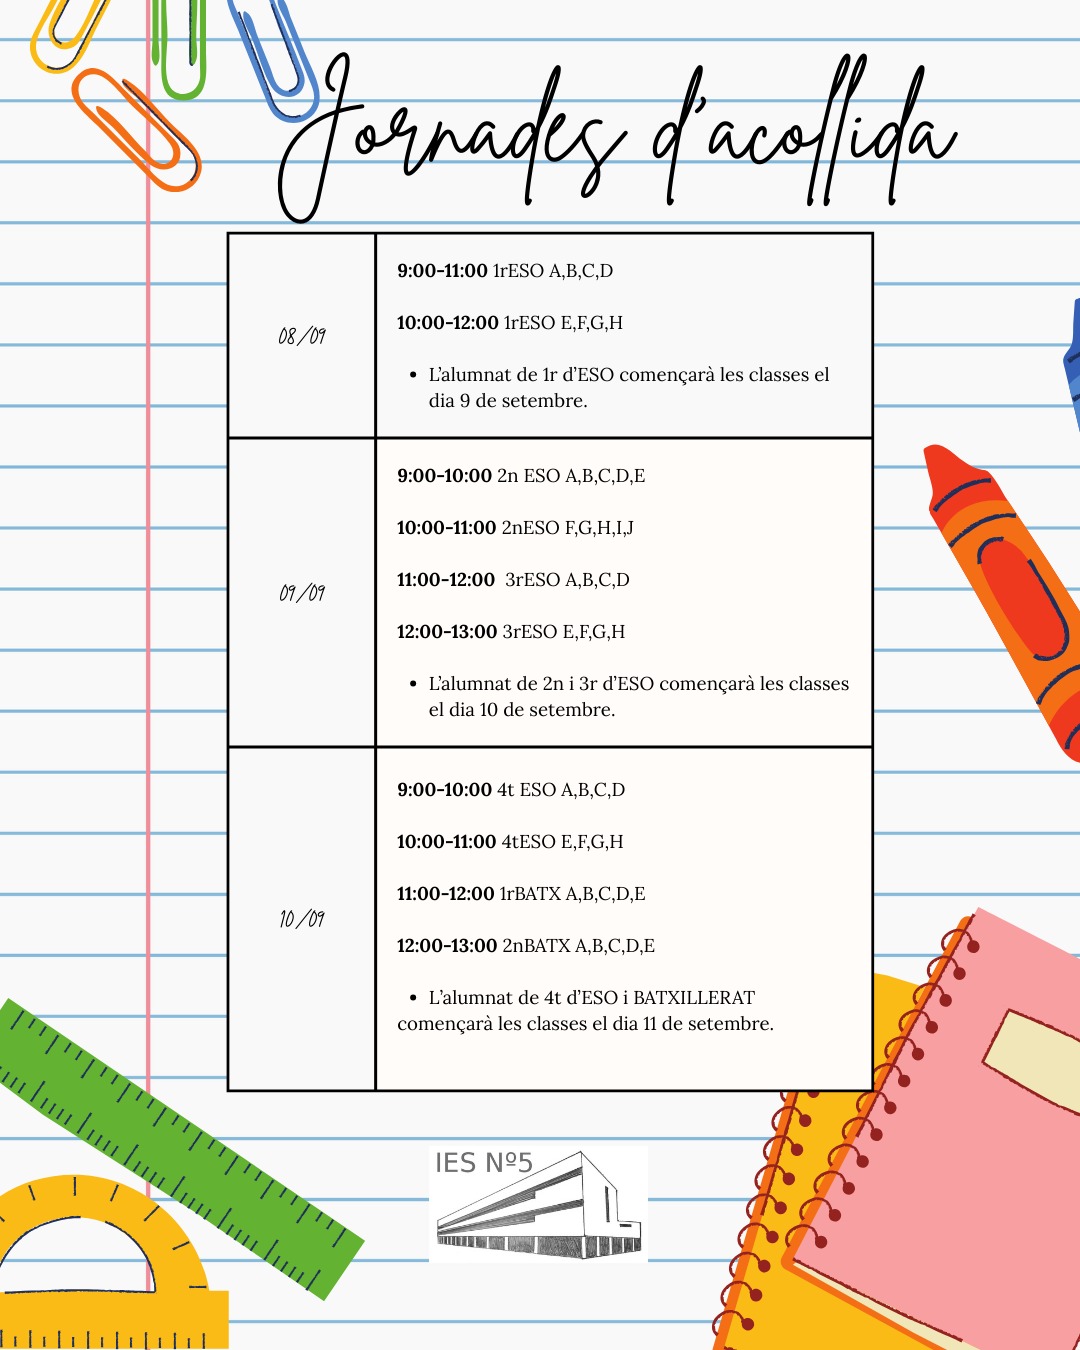 Jornades d'acollida
08/09
9:00-11:00 1rESO A,B,C,D
10:00-12:00 1rESO E,F,G,H
• L'alumnat de 1r d'ESO començarà les classes el
dia 9 de setembre.
09/09
9:00-10:00 2n ESO A,B,C,D,E
10:00-11:00 2nESO F,G,H,I,J
11:00-12:00 3rESO A,B,C,D
12:00-13:00 3rESO E,F,G,H
• L'alumnat de 2n i 3r d'ESO començarà les classes
el dia 10 de setembre.
10/09
9:00-10:00 4t ESO A,B,C,D
10:00-11:00 4tESO E,F,G,H
11:00-12:00 1rBATX A,B,C,D,E
12:00-13:00 2nBATX A,B,C,D,E
• L'alumnat de 4t d'ESO i BATXILLERAT
començarà les classes el dia 11 de setembre.
IES Nº5